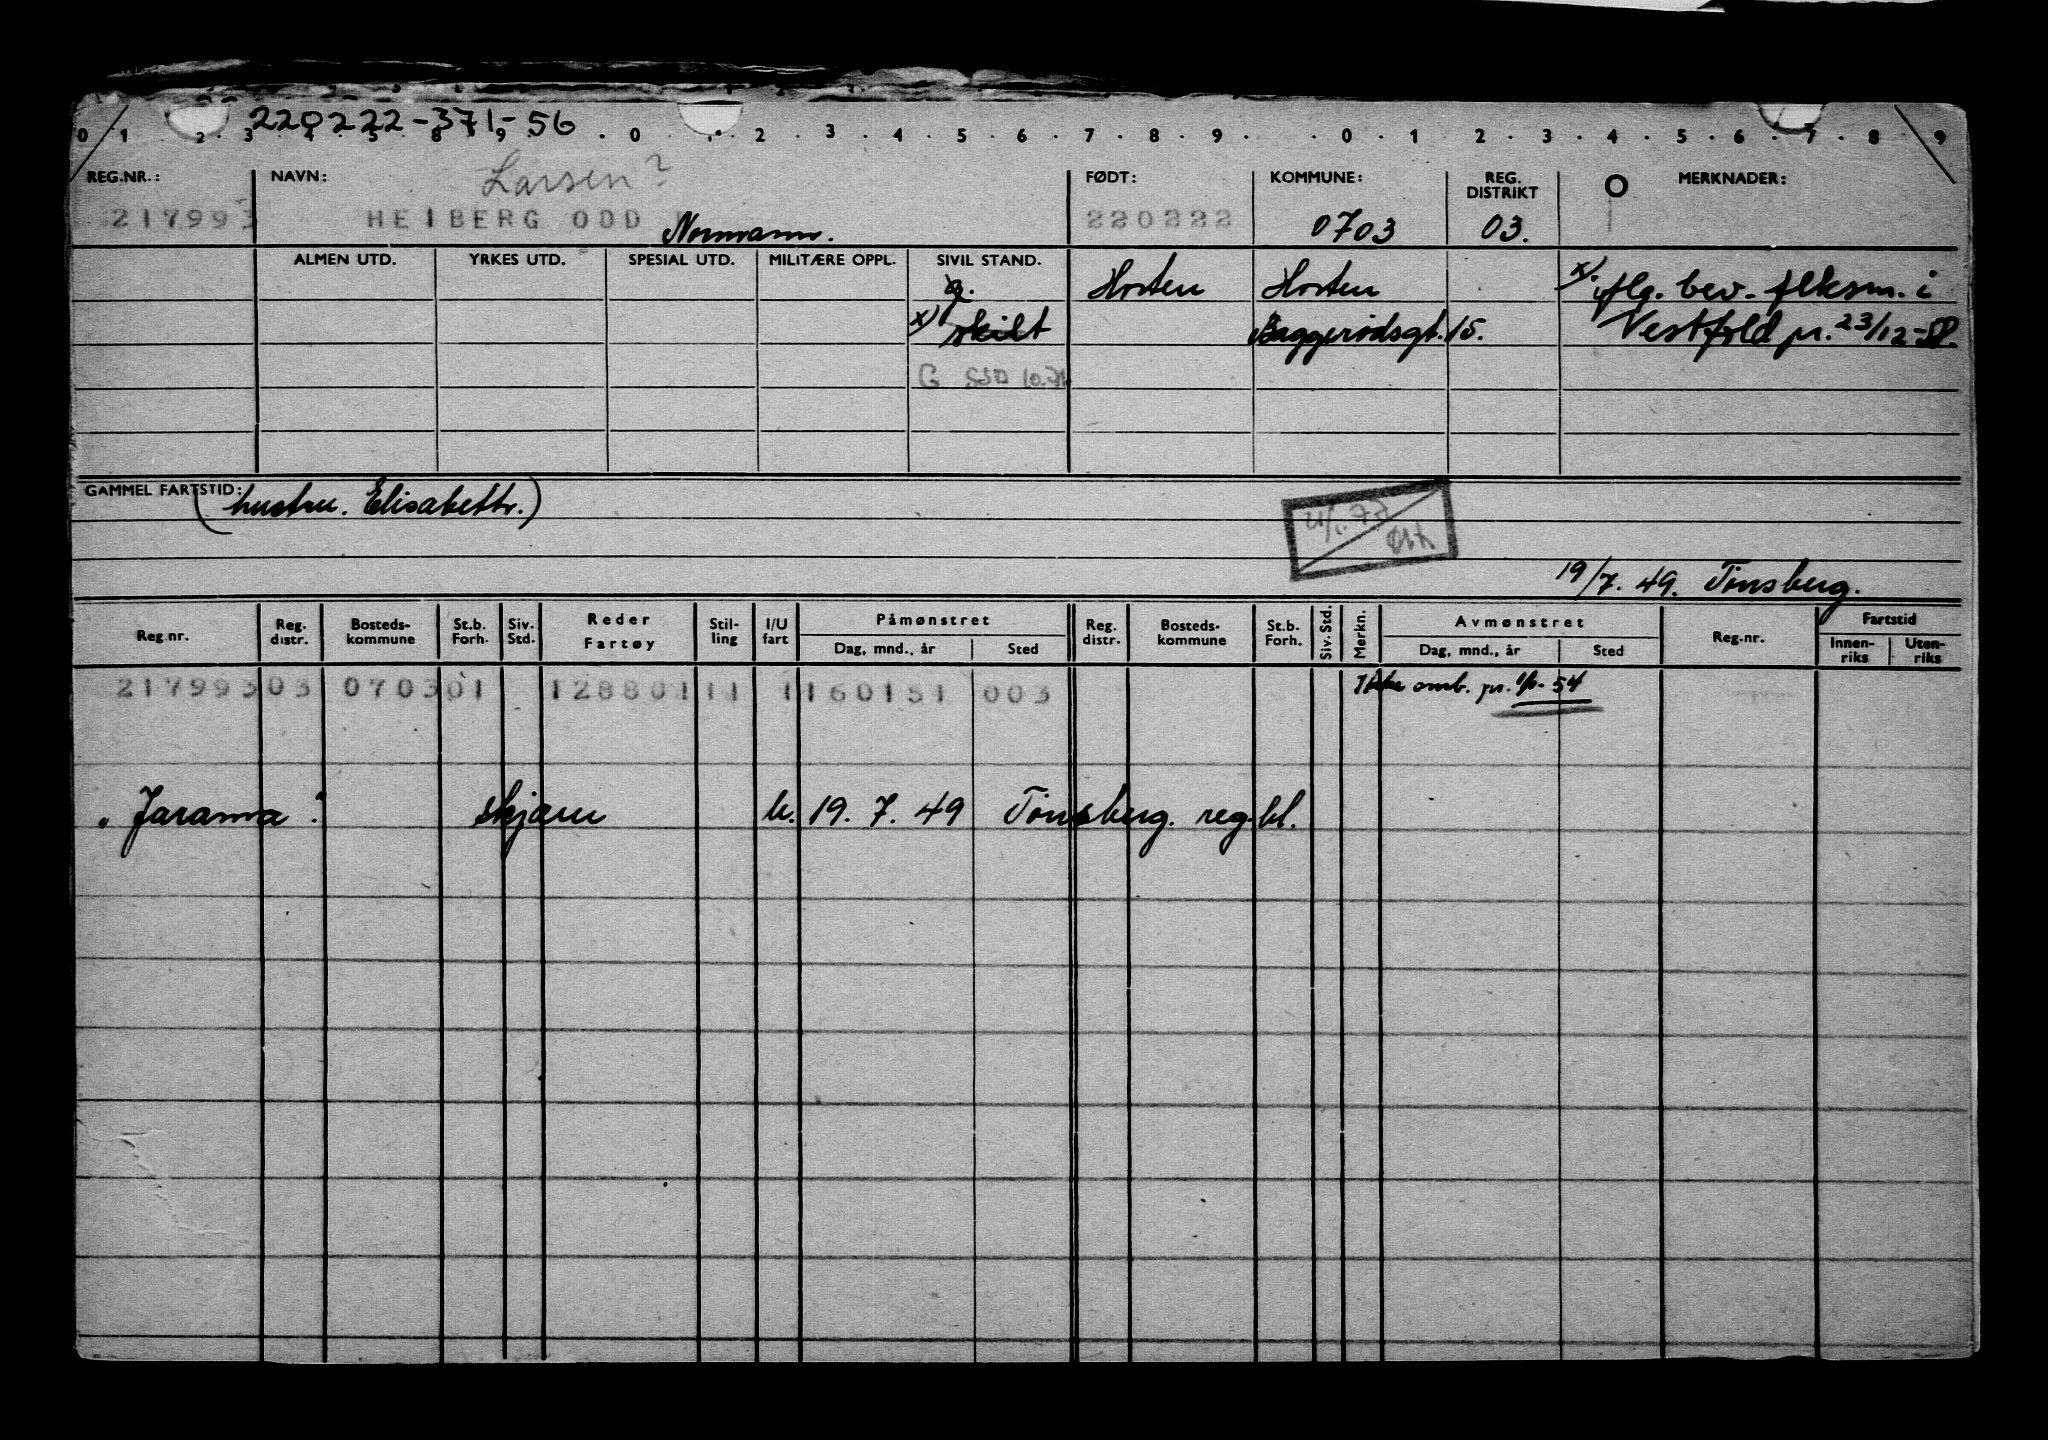 220222-371-56
0 1 2 3 4 5 8 9 0 . 2 . 3 . 4 . 5 . 6 . 7 . 8 . 9 . . 0 . 1 . 2 . 3 . 4 . 5 . 6 . 7 . 8 . 9
Larsen?
REG.NR.: NAVN: FØDT: KOMMUNE: REG. DISTRIKT MERKNADER:
217993 HEIBERG ODD Normann. 220222 0703 03.
ALMEN UTD. YRKES UTD. SPESIAL UTD. MILITÆRE OPPL. SIVIL STAND.
g. Horten Horten x). iflg. bev. flksm. i
x) skilt Baggerødsgt. 15. Vestfold pr. 23/12-58.
G SSD 10.71
GAMMEL FARTSTID:
(hustru. Elisabeth.)
19/7. 49. Tønsberg.
Reg.nr. Reg. distr. Bosteds-kommune St.b. Forh. Siv. Std. Reder Fartøy Stil-ling I/U fart Påmønstret Reg. distr. Bosteds-kommune St.b. Forh. Siv. Std. Merkn. Avmønstret Reg.nr. Fartstid
Dag, mnd., år Sted Dag, mnd., år Sted Innen-riks Uten-riks
217993 03 0703 01 128801 11 1 160151 003 Ikke omb. pr. 1/1-54
"Jarama". skjærer u. 19. 7. 49 Tønsberg. reg.bl.